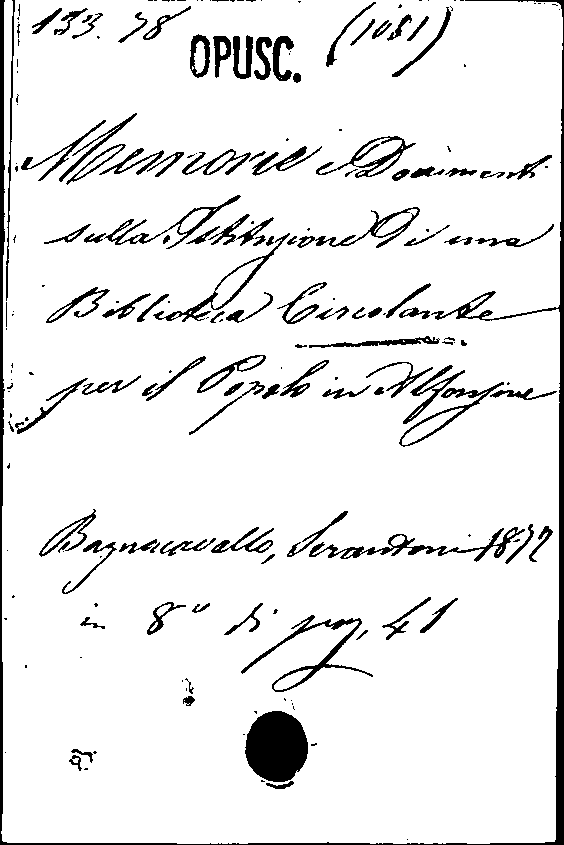 133. 78 (1081)
OPUSC.
Memorie e Documenti
sulla Istituzione di una
Biblioteca Circolante
per il Popolo in Alfonsine
Bagnacavallo, Serantoni 1872
in 8° di pag. 41